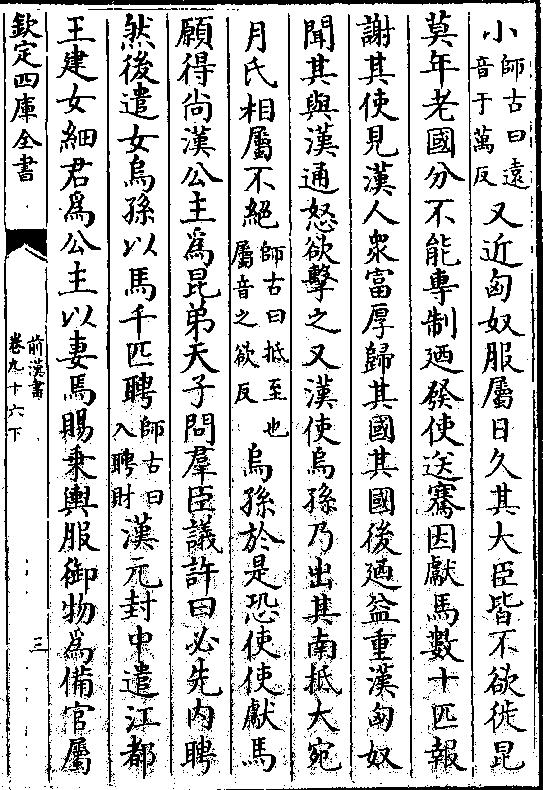 小師古曰遠音于萬反又近匈奴服屬日久其大臣皆不欲徙昆
莫年老國分不能專制廼發使送騫因獻馬數十匹報
謝其使見漢人衆富厚歸其國其國後廼益重漢匈奴
聞其與漢通怒欲擊之又漢使烏孫乃出其南抵大宛
月氏相屬不絕師古曰抵至也屬音之欲反烏孫於是恐使使獻馬
願得尚漢公主為昆弟天子問羣臣議許曰必先内聘
然後遣女烏孫以馬千匹聘師古曰入聘財漢元封中遣江都
王建女細君為公主以妻焉賜乘輿服御物為備官屬
欽定四庫全書
前漢書
卷九十六下
三